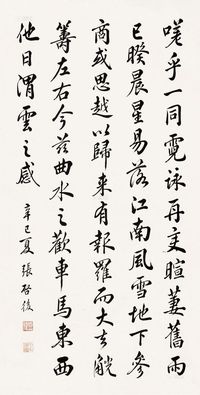 嗟乎一同霓詠再变暄萋舊雨
已睽晨星易落江南風雪地下參
商或思越以歸来有報羅而大去觥
籌左右今兹曲水之歡車馬東西
他日渭雲之感
辛巳夏張啓後